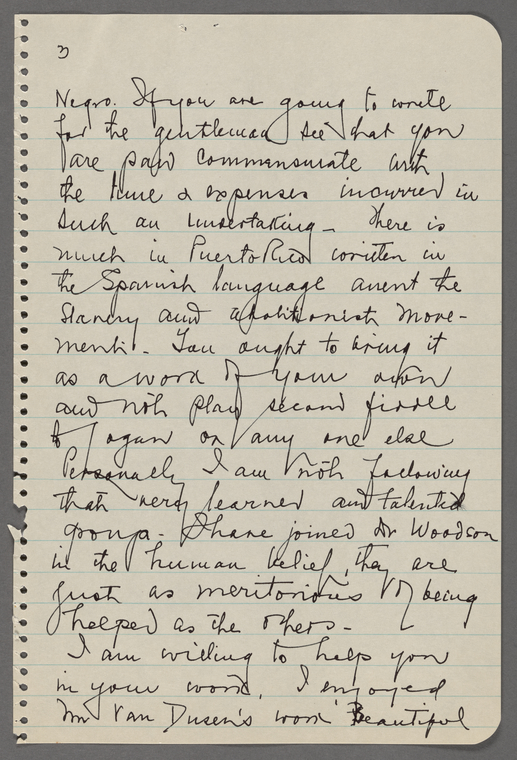 3
Negro. If you are going to write
for the gentleman see that you
are paid commensurate with
the time & expenses incurred in
such an undertaking - There is
much in Puerto Rico written in
the Spanish language anent the
Slavery and abolitionist move-
ment. You ought to bring it
as a work of your own
and not play second fiddle
to Logan or any one else
Personally I am not following
that very learned and talented
group - I have joined Dr Woodson
in the human belief, they are
just as meritorious of being
helped as the others -
I am willing to help you
in your work. I enjoyed
Mr Van Dusen's work Beautiful